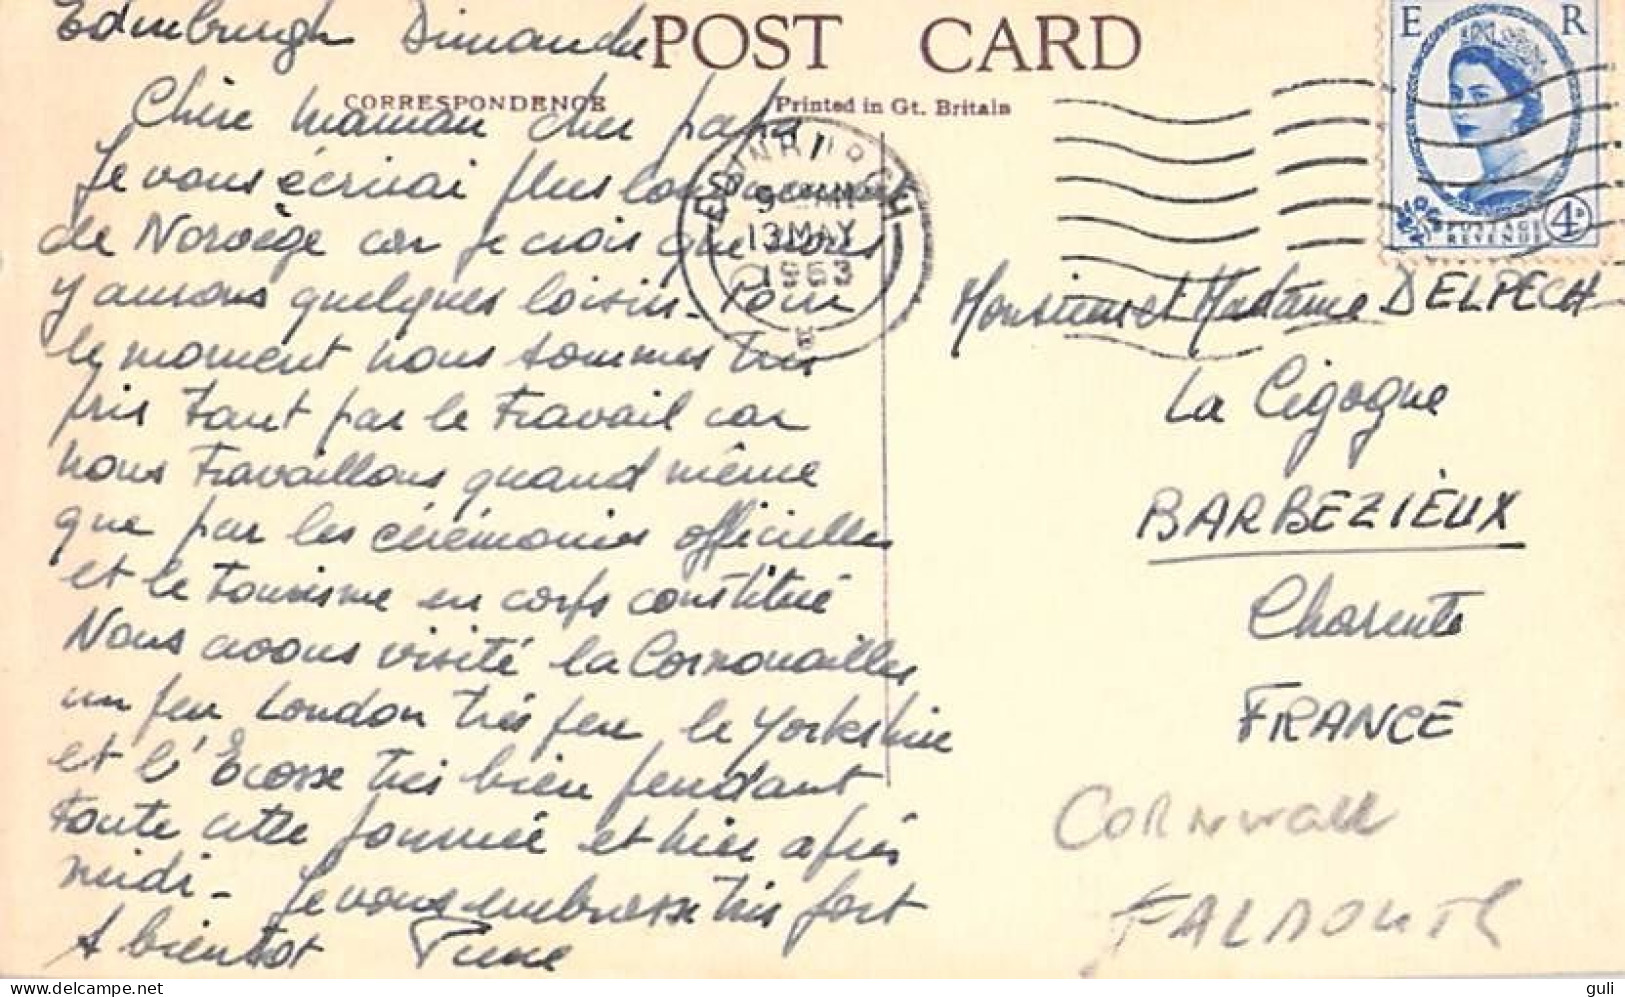 Edimburgh Dimanche
POST CARD
CORRESPONDENCE
Printed in Gt. Britain
E R
POSTAGE
REVENUE
4D
EDINBURGH
13 MAY
1963
Chère maman cher papa
Je vous écrirai plus longuement
de Norvège car je crois que nous
y aurons quelques loisirs. Pour
le moment nous sommes très
pris tant par le travail car
nous travaillons quand même
que par les cérémonies officielles
et le tourisme en corps constitué
Nous avons visité la Cornouailles
un peu London très peu le Yorkshire
et l'Écosse très bien pendant
toute cette journée et hier après
midi - Je vous embrasse très fort
A bientôt Pierre
Monsieur et Madame DELPECH
La Cigogne
BARBEZIÈUX
Charente
FRANCE
CORNWALL
FALMOUTH
guli